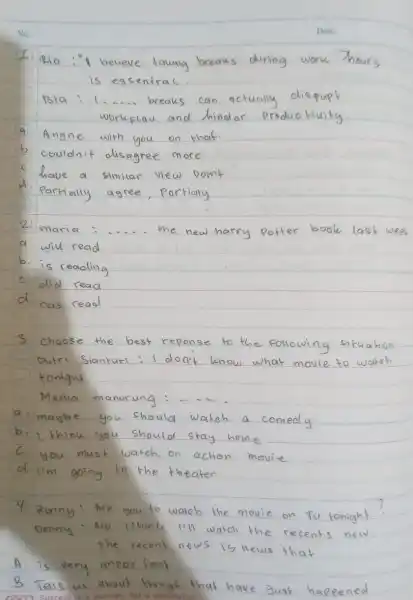 No.
Date:
1. Rio : "I believe taking breaks during work hours
is essential.
Bia : I ..... breaks can actually disrupt
workflow and hindar productivity
a. Angne with you on that.
b. couldn't disagree more
c. have a similar view point
d. Partially agree, Partially
2. maria : ..... the new harry Potter book last wee
a will read
b. is reading
c. did read
d. has read
3. choose the best reponse to the Following situation
Putri Sianturi : I don't know what movie to watch
tonigus
Manurung : ....
a. maybe you should watch a comedy
b. I think you should stay home
c. you must watch on action movie
d. I'm going to the theater
4. Bunny : Are you to watch the movie on TV tonight ?
Denny : I'll watch the resents new
the recent news is news that
A is very
B Tells us about things that have Just happened